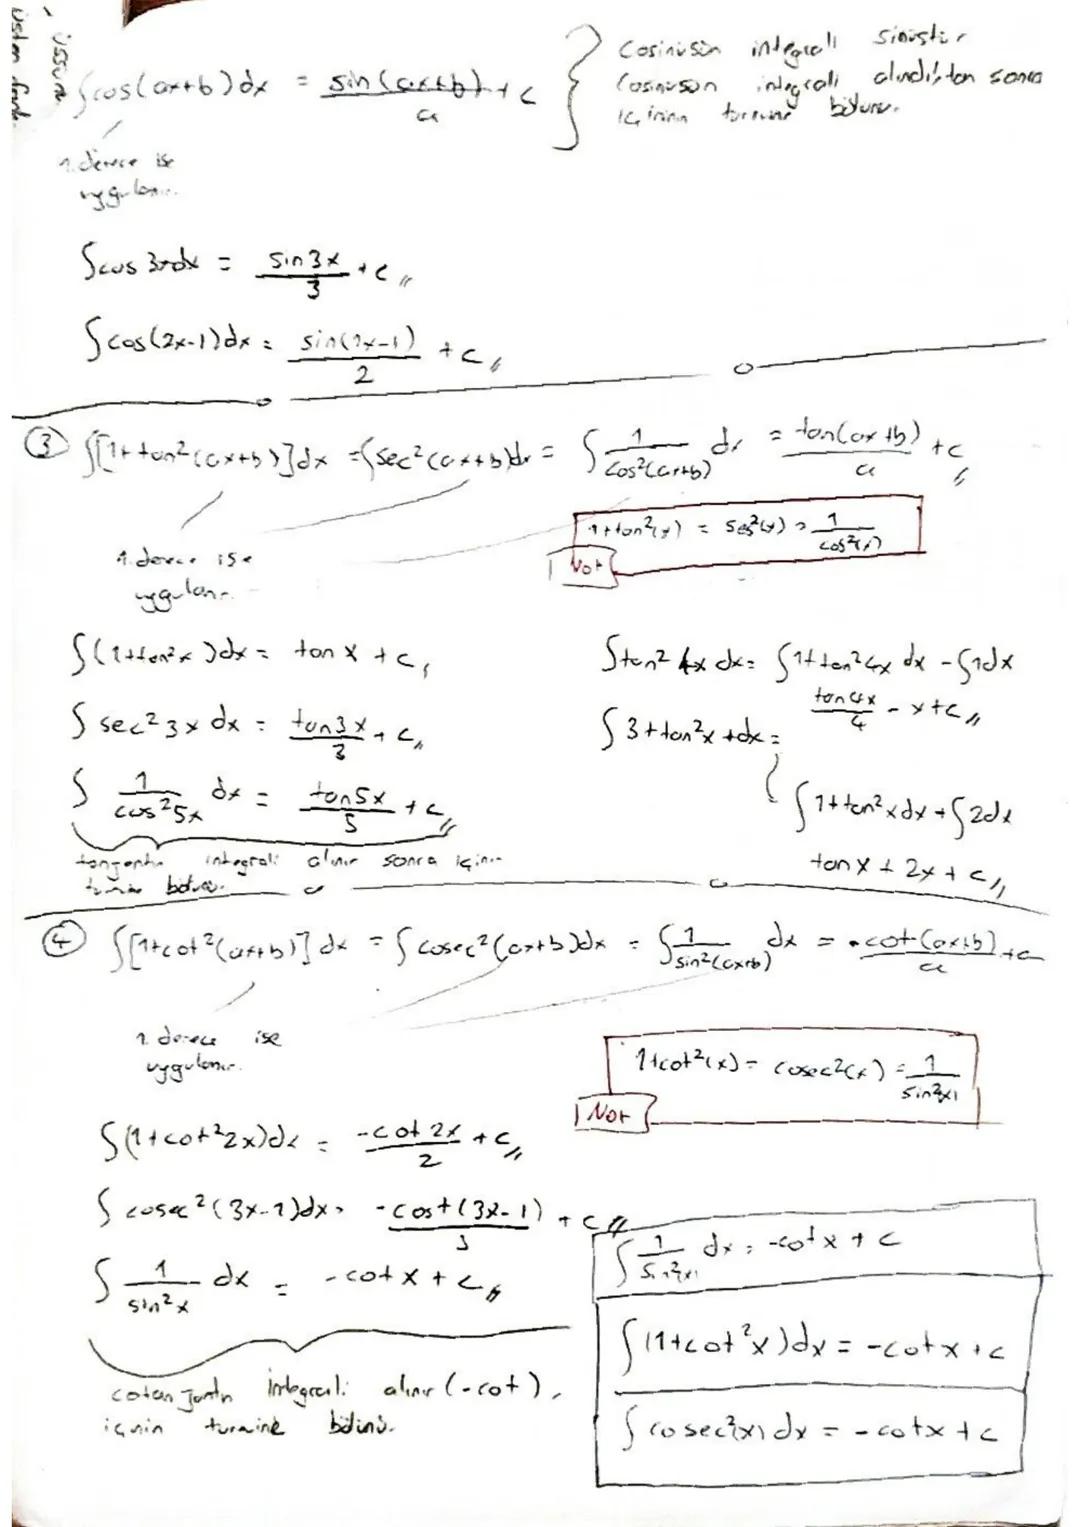 üssüne
üsten
∫cos(ax+b)dx = sin(ax+b)/a + c
Cosinüsün integrali sinüstür
Cosinüsün integrali alındıktan sonra
içinin türevine bölünür.
1. derece ise
uygulanır.
∫cos3xdx = sin3x/3 + c
∫cos(2x-1)dx = sin(2x-1)/2 + c
③ ∫[1+tan²(ax+b)]dx = ∫sec²(ax+b)dx = ∫1/cos²(ax+b) dx = tan(ax+b)/a + c
1+tan²(x) = sec²(x) = 1/cos²(x)
Not
1. derece ise
uygulanır.
∫(1+tan²x)dx = tan x + c
∫sec²3x dx = tan3x/3 + c
∫1/cos²5x dx = tan5x/5 + c
tanjantın integrali alınır sonra içinin
türevine bölünür.
∫tan²4x dx = ∫1+tan²4x dx - ∫1dx
tan4x/4 - x + c
∫3+tan²x+dx =
∫1+tan²xdx + ∫2dx
tanx + 2x + c
④ ∫[1+cot²(ax+b)]dx = ∫cosec²(ax+b)dx = ∫1/sin²(ax+b) dx = -cot(ax+b)/a + c
1. derece ise
uygulanır.
1+cot²(x) = cosec²(x) = 1/sin²(x)
Not
∫(1+cot²2x)dx = -cot2x/2 + c
∫cosec²(3x-1)dx = -cost(3x-1)/3 + c
∫1/sin²x dx = -cotx + c
cotanjantın integrali alınır (-cot),
içinin türevine bölünür.
∫1/sin²(x) dx = -cotx + c
∫(1+cot²x)dx = -cotx + c
∫cosec²(x)dx = -cotx + c